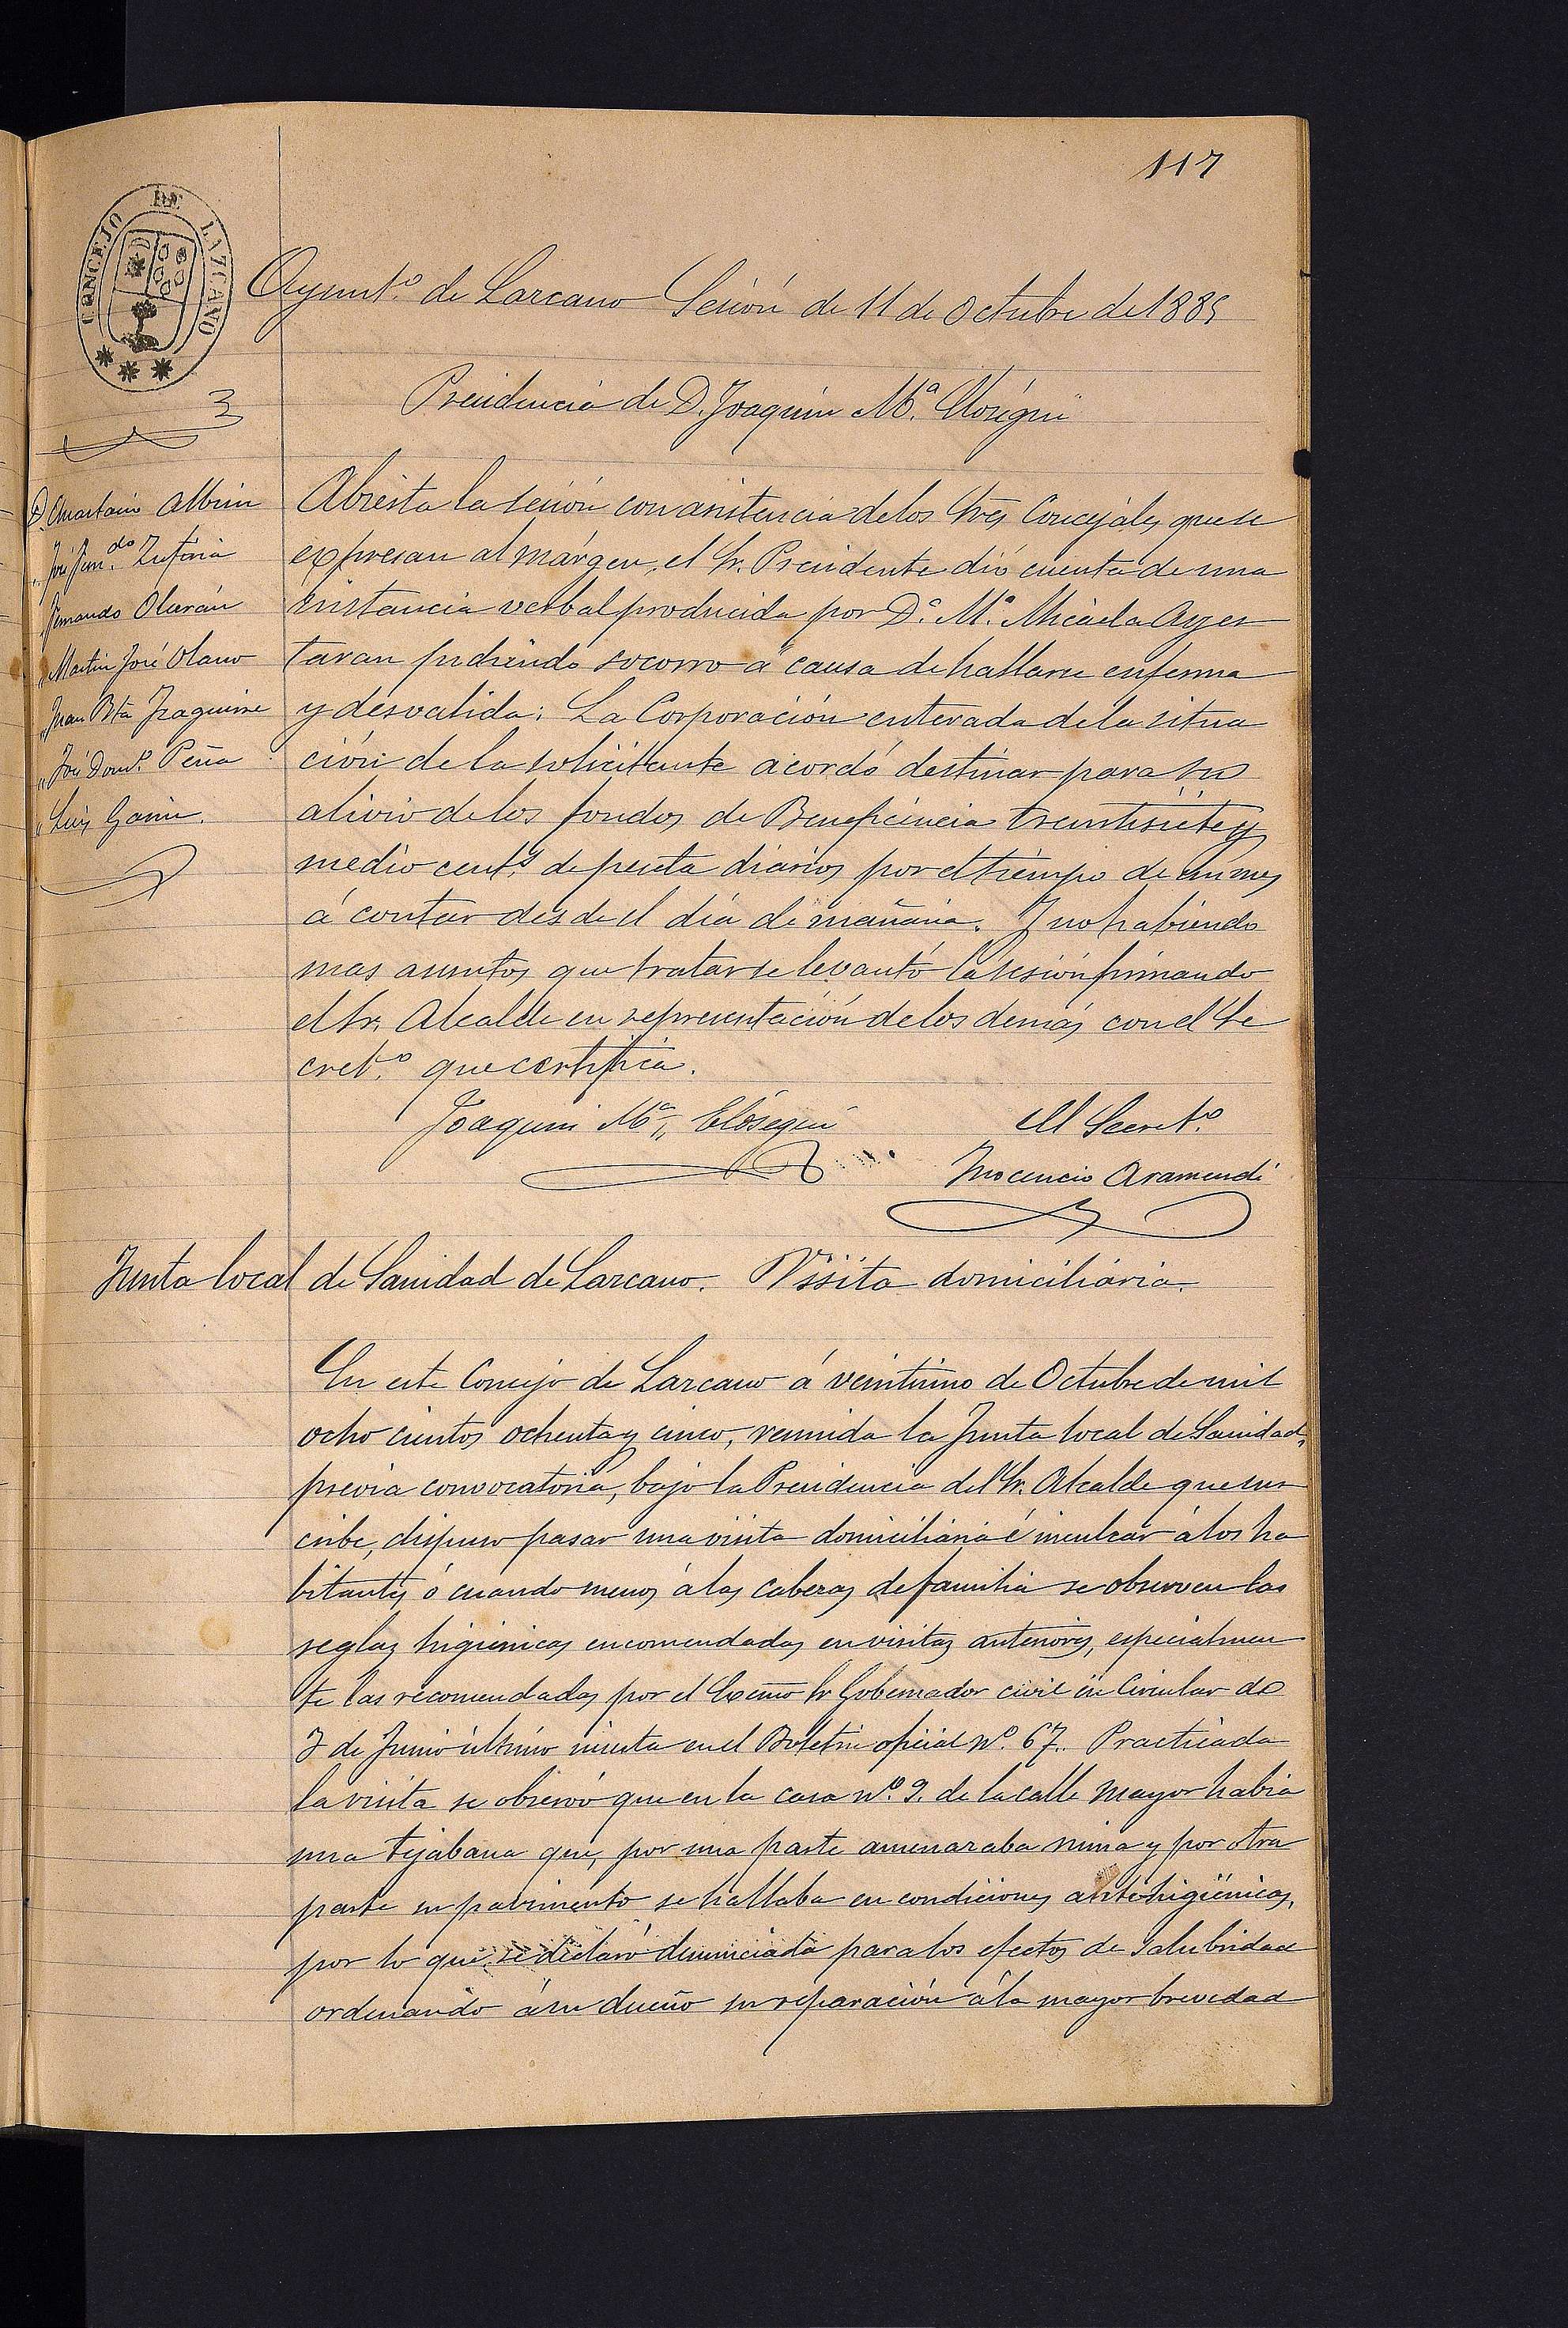 117
CONCEJO DE LAZCANO
Ayunt.º de Lazcano Sesión de 11 de Octubre de 1885
Presidencia de D. Joaquin M.ª Elósegui
D. Anastasio Albisu
" José Fern.do Zufiria
" Fernando Olarán
" Martin José Olano
" Juan Bta Izaguirre
" José Dom.º Peña
" Luis Garin.
Abierta la sesión con asistencia de los Sres Concejales que se
expresan al márgen, el Sr. Presidente dió cuenta de una
instancia verbal producida por D.ª M.ª Micaela Ayes
taran pidiendo socorro á causa de hallarse enferma
y desvalida: La Corporación enterada de la situa
ción de la solicitante acordó destinar para su
alivio de los fondos de Beneficencia treintisiete y
medio cent.s de peseta diarios por el tiempo de un mes
á contar desde el día de mañana. Y no habiendo
mas asuntos que tratar se levantó la sesión firmando
el Sr. Alcalde en representación de los demás con el Se
cret.º que certifica.
Joaquin M.ª Elósegui
El Secret.º
Inocencio Aramendi
Junta local de Sanidad de Lazcano. Visita domiciliaria.
En este Concejo de Lazcano á veintiuno de Octubre de mil
ocho cientos ochenta y cinco, reunida la Junta local de Sanidad,
previa convocatoria, bajo la Presidencia del Sr. Alcalde que sus
cribe, dispuso pasar una visita domiciliaria é inculcar á los ha
bitantes ó cuando menos á las cabezas de familia se observen las
reglas higienicas encomendadas en visitas anteriores, especialmen
te las recomendadas por el Excmo Sr Gobernador civil en Circular de
3 de Junio último inserta en el Boletin oficial Nº. 67. Practicada
la visita se observó que en la casa nº. 9. de la calle mayor habia
una tejabana que, por una parte amenazaba ruina y por otra
parte su pavimento se hallaba en condiciones antehigiénicas,
por lo que se declaró denunciada para los efectos de salubridad
ordenando á su dueño su reparación á la mayor brevedad